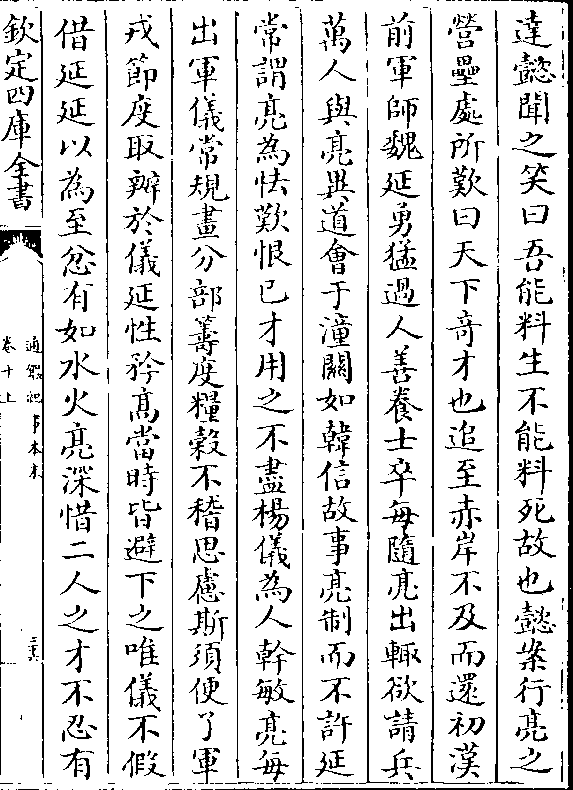 達懿聞之笑曰吾能料生不能料死故也懿案行亮之
營壘處所歎曰天下奇才也追至赤岸不及而還初漢
前軍師魏延勇猛過人善養士卒每隨亮出輙欲請兵
萬人與亮異道會于潼關如韓信故事亮制而不許延
常謂亮為怯歎恨已才用之不盡楊儀為人幹敏亮每
出軍儀常規畫分部籌度糧榖不稽思慮斯須便了軍
戎節度取辦於儀延性矜髙當時皆避下之唯儀不假
借延延以為至忿有如水火亮深惜二人之才不忍有
欽定四庫全書
通鑑紀事本末
卷十上
三六